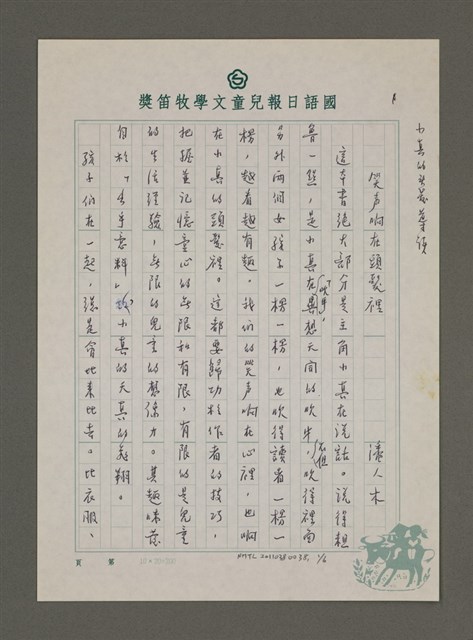 國語日報兒童文學牧笛獎
小真的長髮
笑声响在頭髮裡　潘人木
這本書絕大部分是主角小真在說話。說得粗
魯一點，是小真在「吹牛」，異想天開的吹牛，不但吹得裡面
另外兩個女孩子一楞一楞，也吹得讀者一楞一
楞，越看越有趣。我們的笑声响在心裡，也响
在小真的頭髮裡。這都要歸功於作者的技巧，
把握並記憶童心的無限和有限，有限的是兒童
的生活經驗，無限的兒童的想像力。其趣味蓋
自於「合乎意料」小真的天真的飛翔。
孩子們在一起，總是會比來比去。比衣服、
第　頁